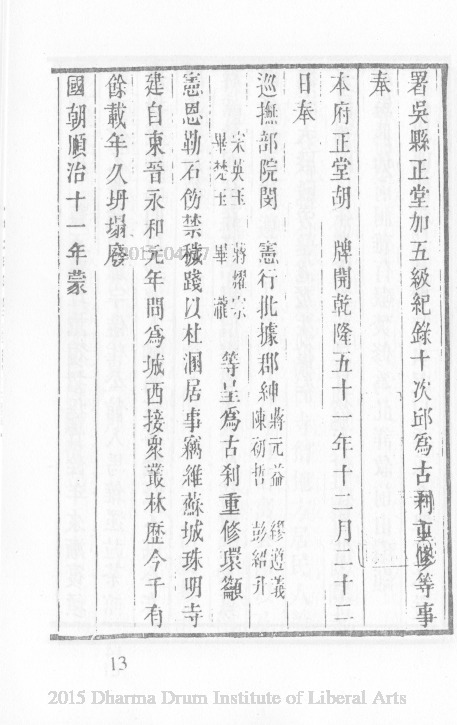 署吳縣正堂加五級紀錄十次邱爲古刹重修等事
奉
本府正堂胡 牌開乾隆五十一年十二月二十二
日奉
巡撫部院閔 憲行批據郡紳蔣元益 繆遵義
陳初哲 彭紹升
宋英玉 蔣耀宗
畢梵玉 畢瀧 等呈爲古刹重修環籲
憲恩勒石仿禁穢踐以杜溷居事竊維蘇城珠明寺
建自東晉永和元年間爲城西接衆叢林歷今千有
餘載年久坍塌廢
國朝順治十一年蒙
13
2015 Dharma Drum Institute of Liberal Arts